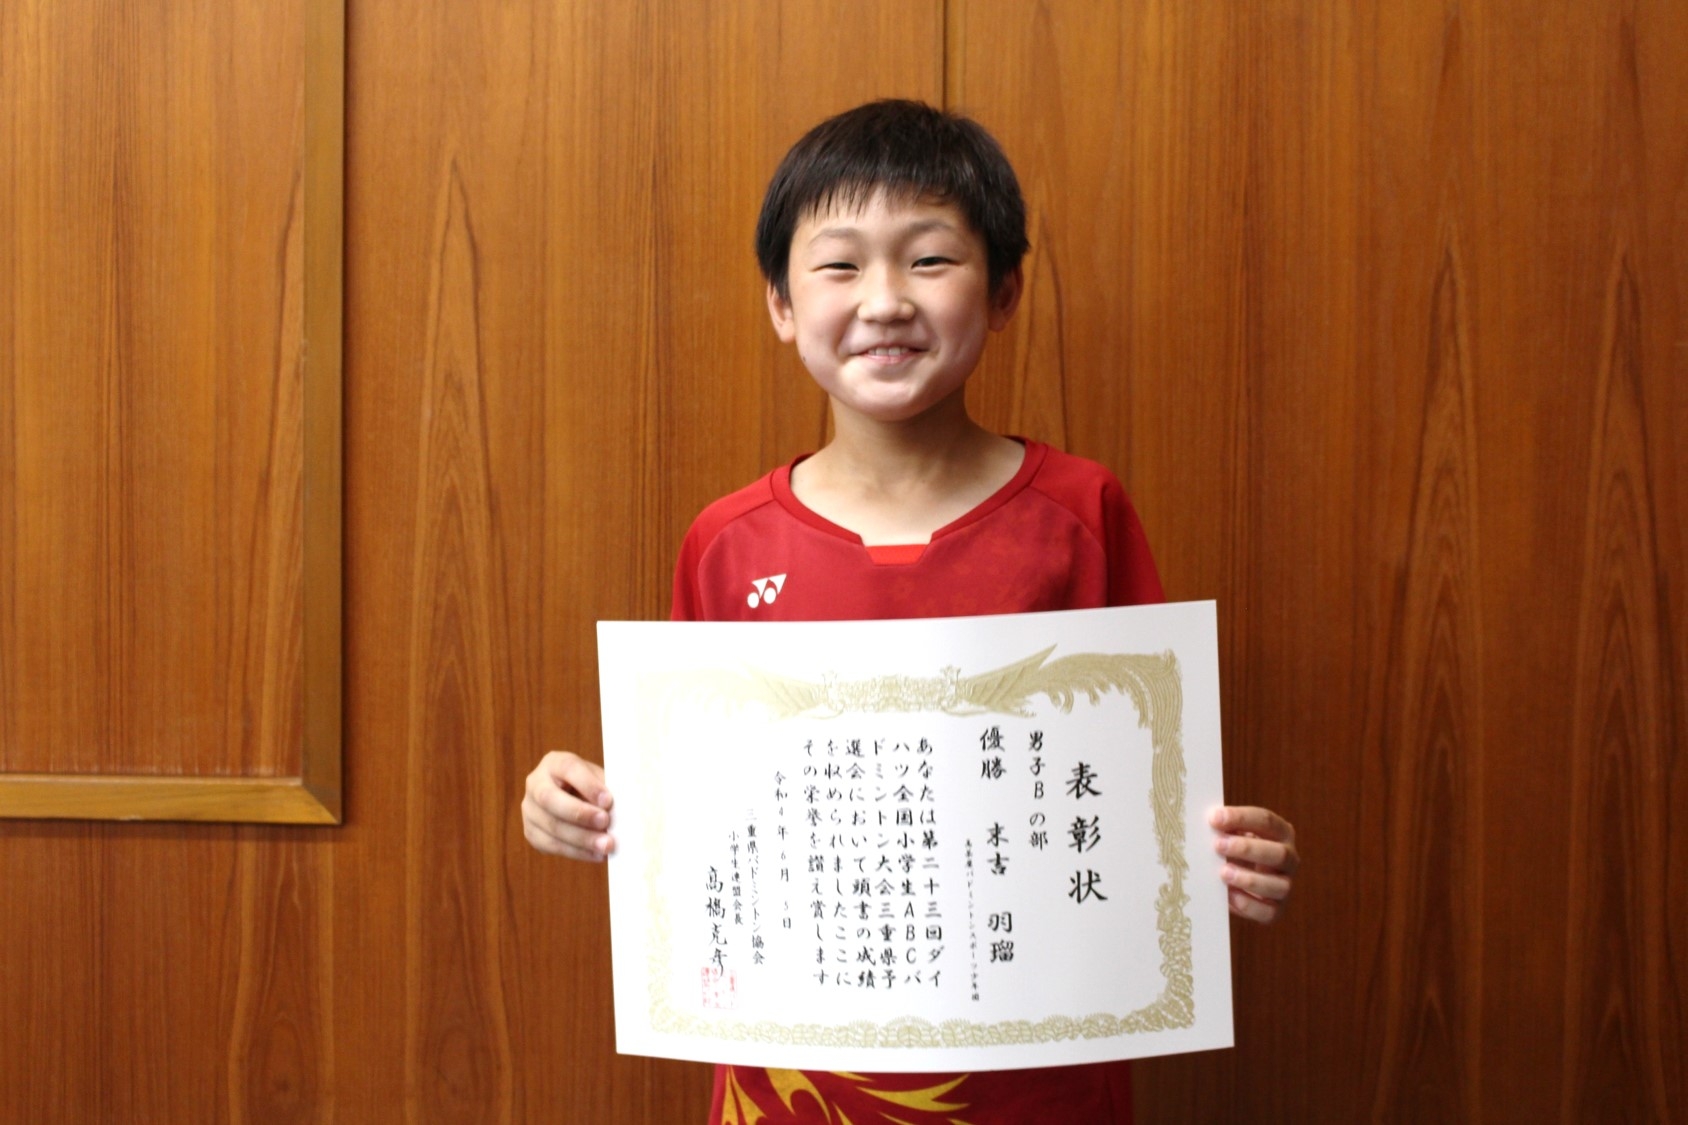 表彰状
男子Bの部
優勝 末吉 羽瑠
バドミントンスポーツ少年団
あなたは第二十三回ダイ
ハツ全国小学生ABCバ
ドミントン大会三重県予
選会において頭書の成績
を収められましたここに
その栄誉を讃え賞します
令和4年6月5日
三重県バドミントン協会
小学生連盟会長